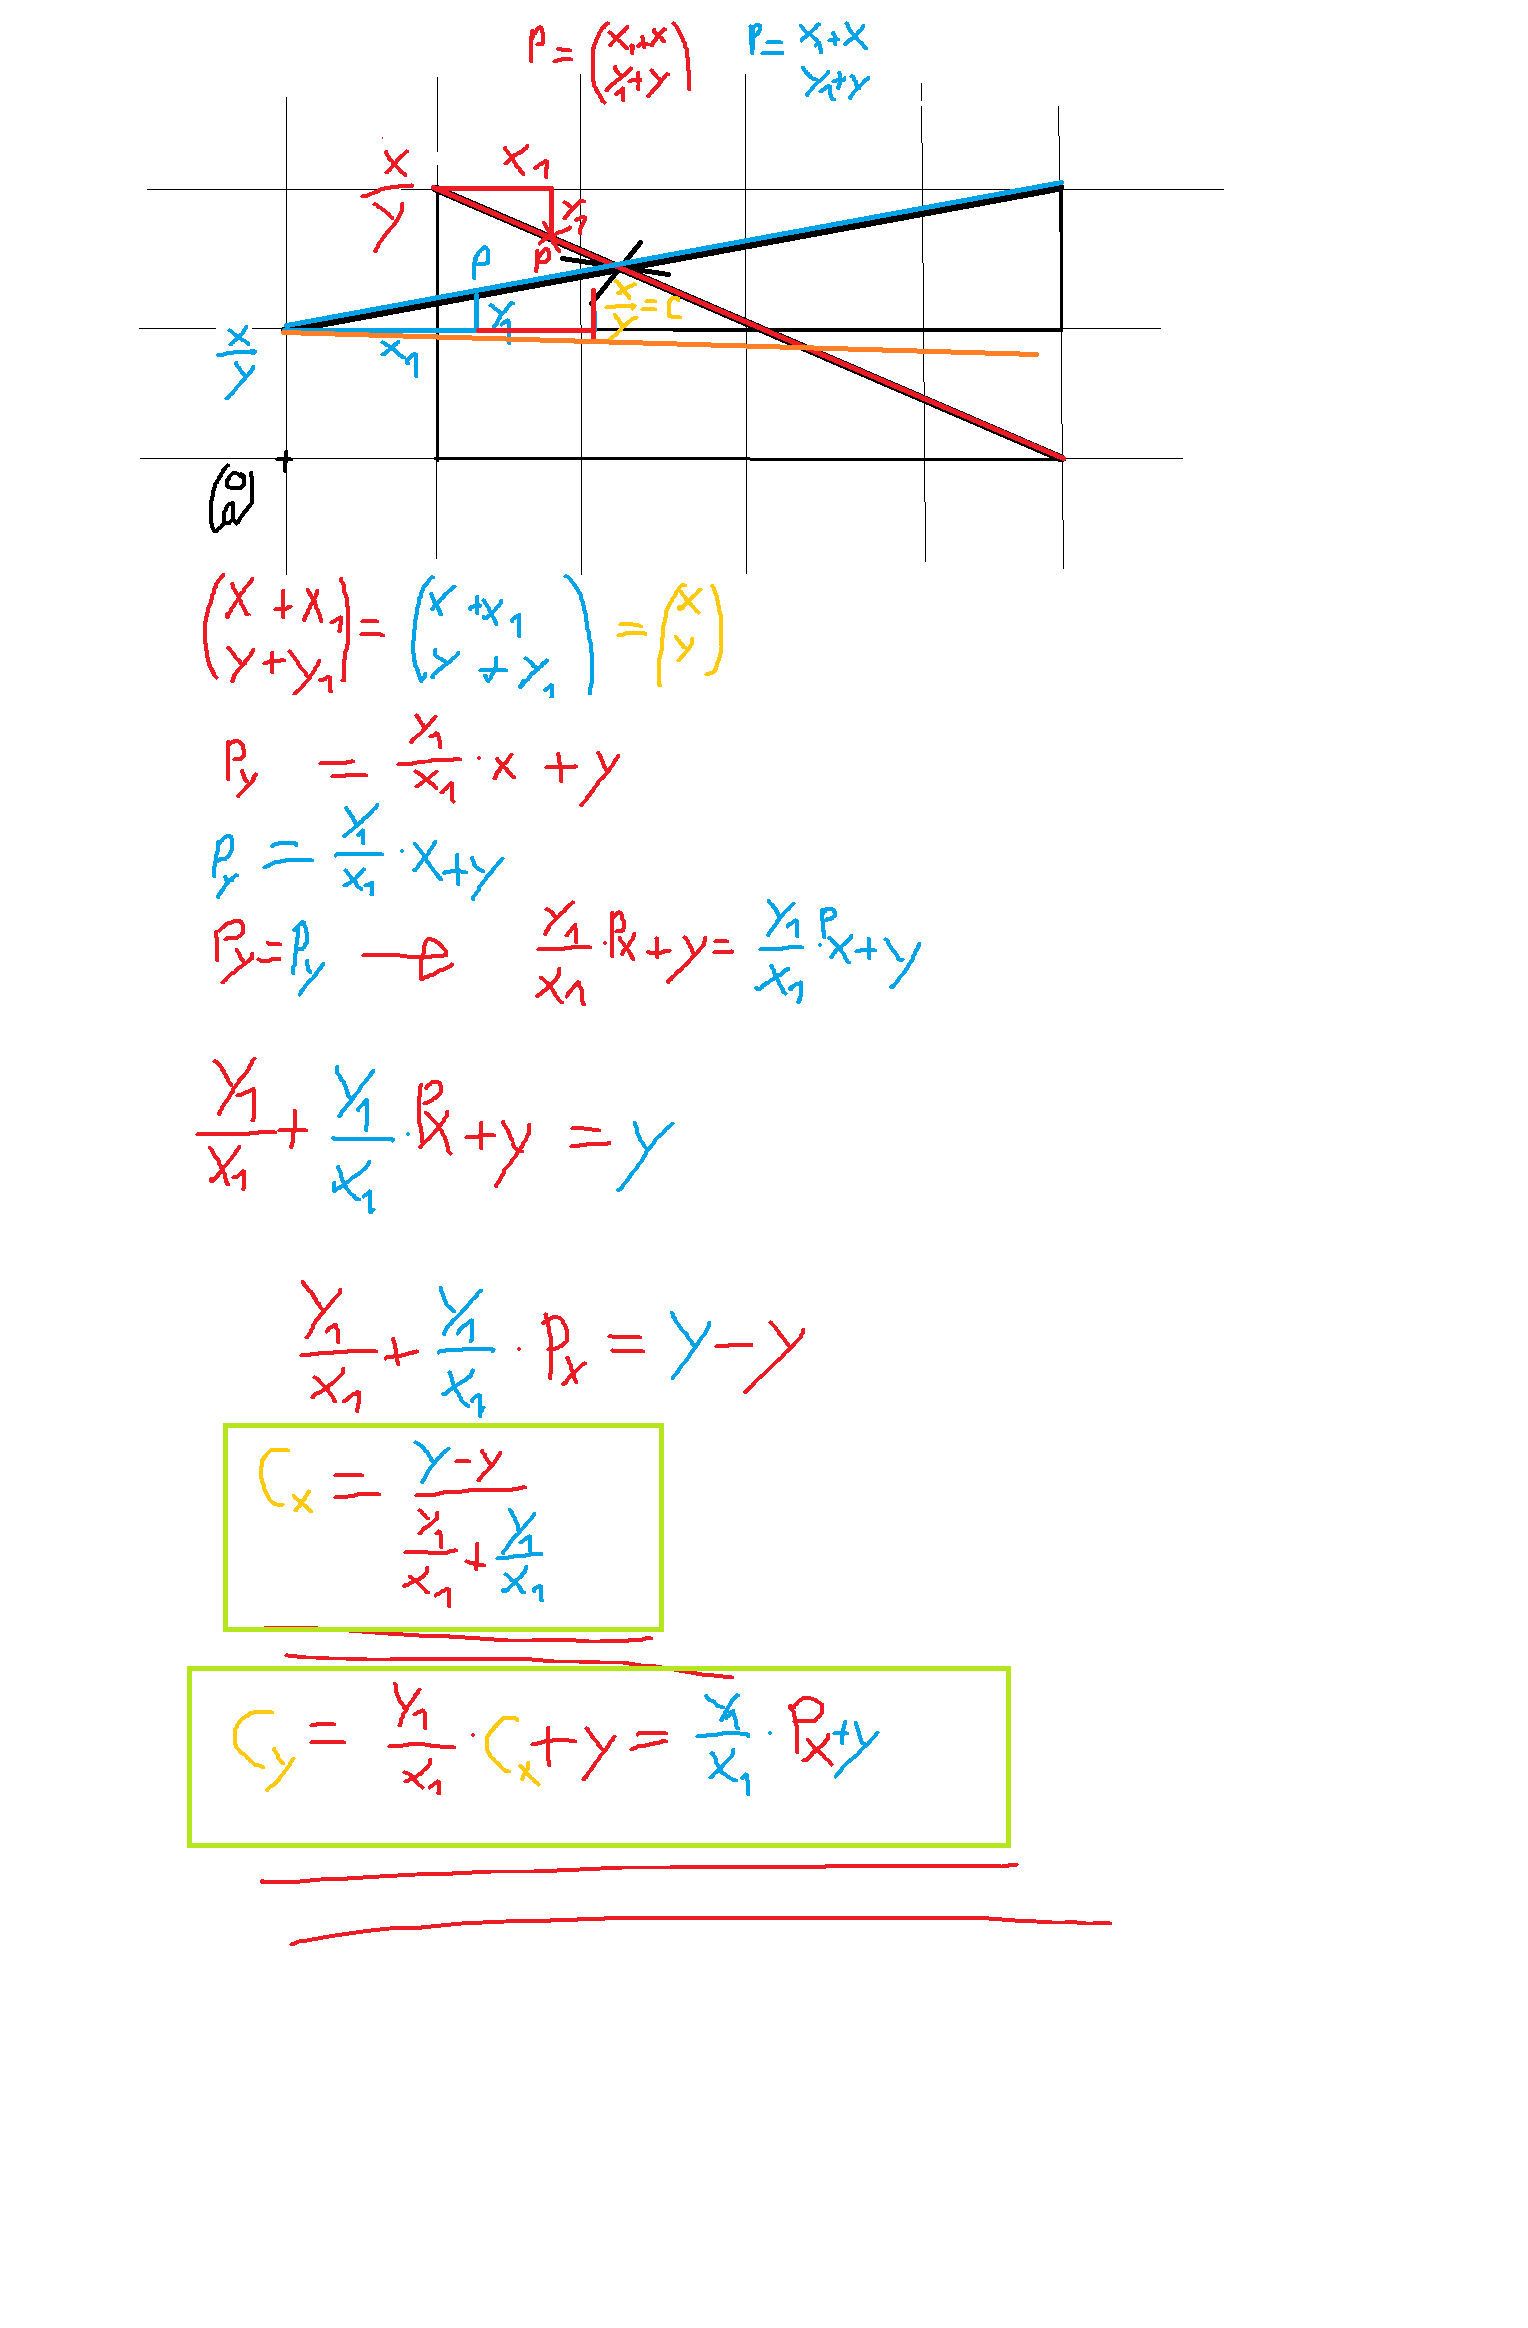 P = (x₁+x y₁+y) P = x₁+x y₁+y
x/y x₁
y₁
P P
x/y = C
y₁
x/y x₁
(0 0)
(x+x₁ y+y₁) = (x+x₁ y+y₁) = (x y)
P_y = y₁/x₁ · x + y
P_y = y₁/x₁ · x + y
P_y = P_y → y₁/x₁ · P_x + y = y₁/x₁ · P_x + y
y₁/x₁ + y₁/x₁ · P_x + y = y
y₁/x₁ + y₁/x₁ · P_x = y - y
C_x = (y - y)/(y₁/x₁ + y₁/x₁)
C_y = y₁/x₁ · C_x + y = y₁/x₁ · P_x + y